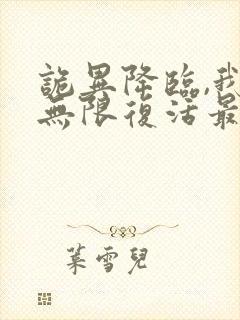 詭異降臨,我
無限復活最
葉雪兒